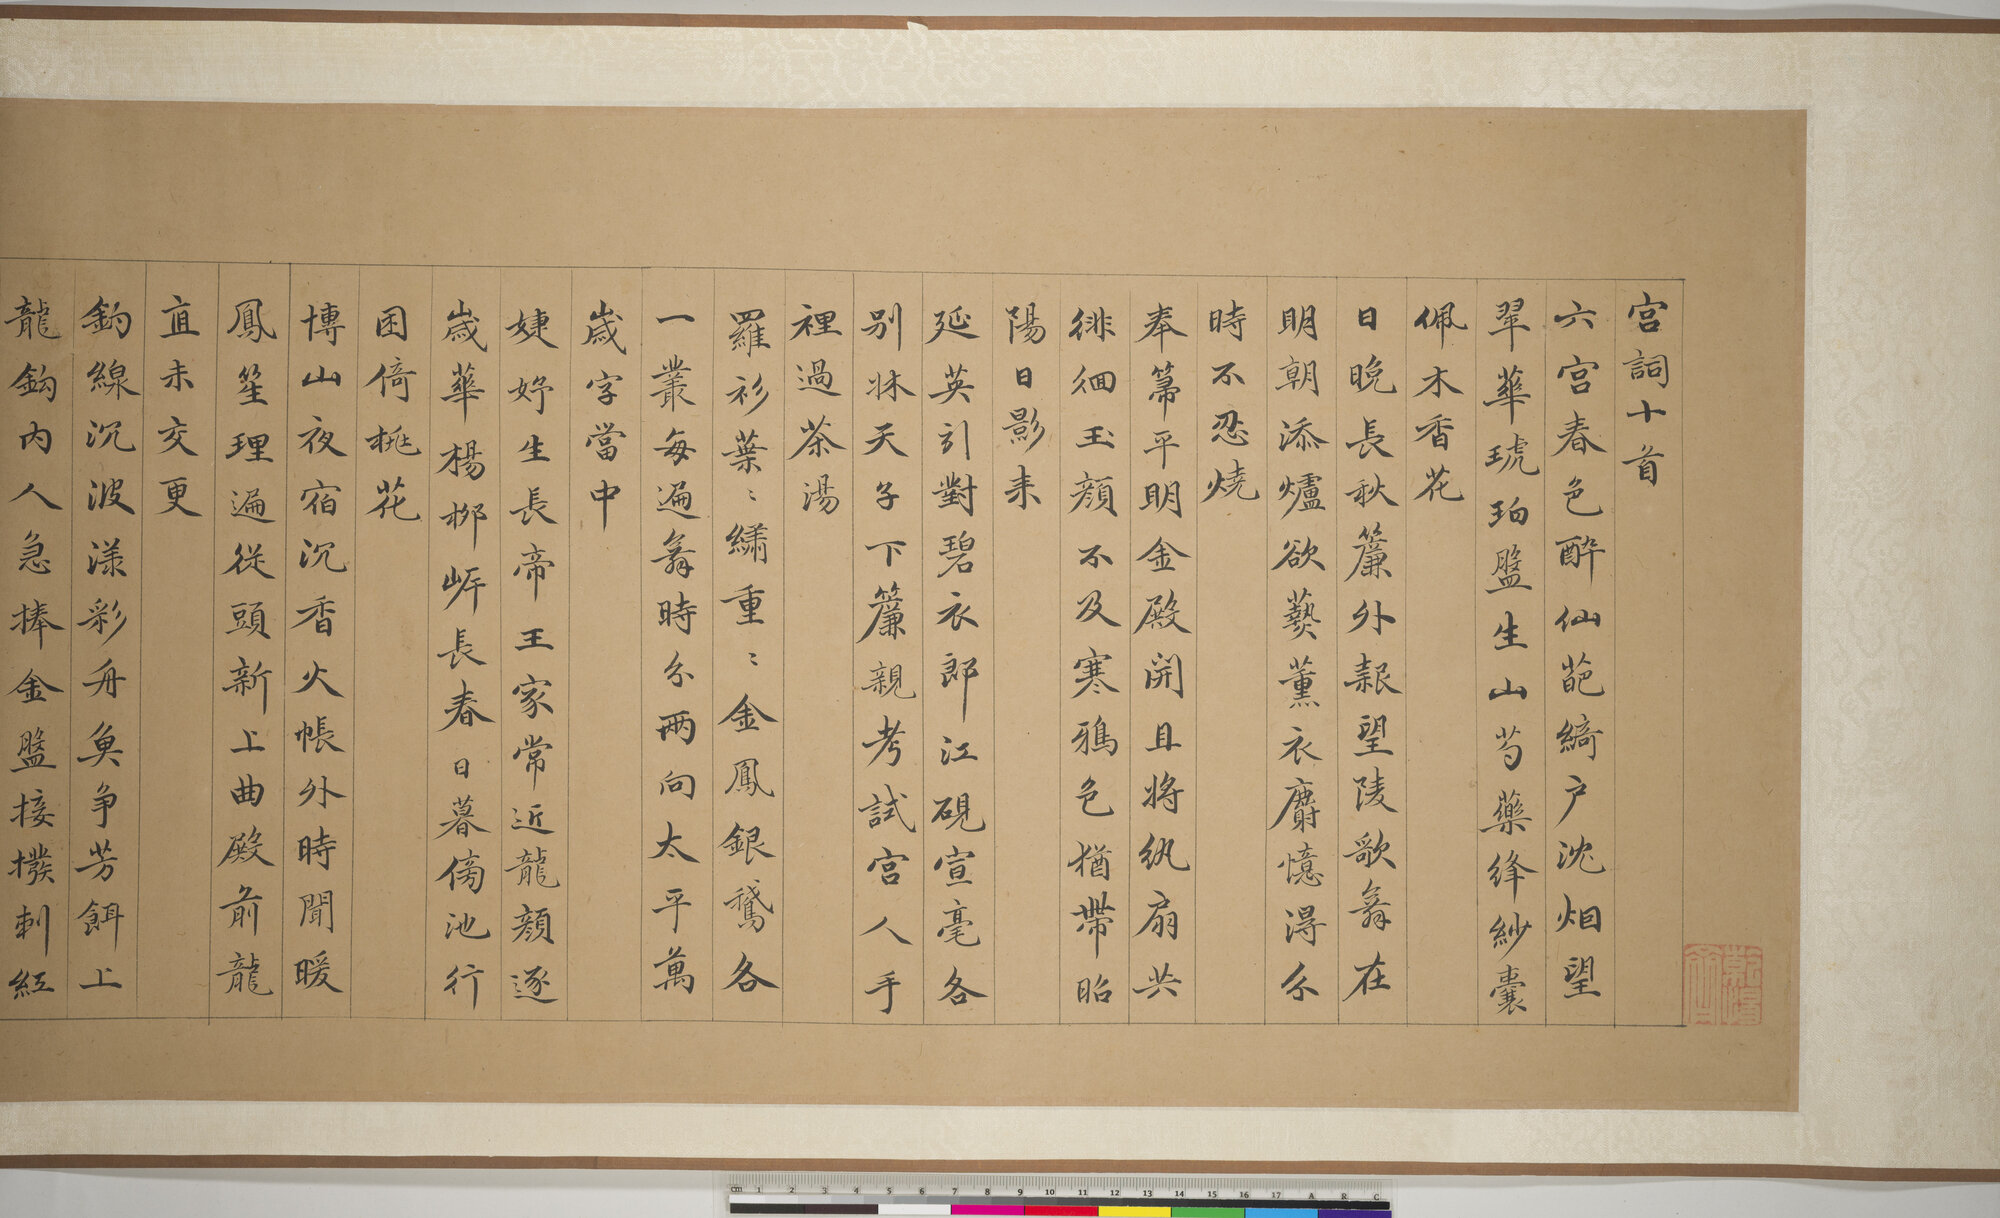 宮詞十首
六宮春色醉仙葩綺戶沈烟望
翠華琥珀盤生山芍藥絳紗囊
佩木香花
日晚長秋簾外報望陵歌舞在
明朝添爐欲爇薰衣麝憶得分
時不忍燒
奉箒平明金殿開且將紈扇共
徘徊玉顏不及寒鴉色猶帶昭
陽日影来
延英引對碧衣郎江硯宣毫各
別牀天子下簾親考試宮人手
裡過茶湯
羅衫葉〻繡重〻金鳳銀鵞各
一叢每遍舞時分兩向太平萬
歲字當中
婕妤生長帝王家常近龍顏逐
歲華楊柳岍長春日暮傍池行
困倚桃花
博山夜宿沉香火帳外時聞暖
鳳笙理遍從頭新上曲殿前龍
直未交更
釣線沉波漾彩舟魚争芳餌上
龍鈎内人急捧金盤接撥刺紅
cm 1 2 3 4 5 6 7 8 9 10 11 12 13 14 15 16 17 A R C